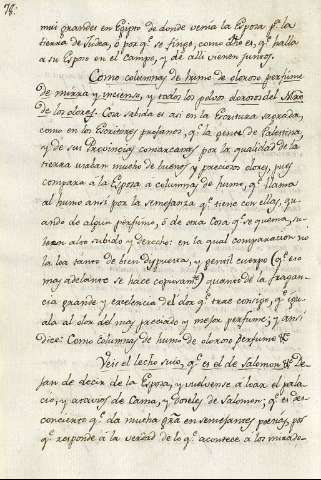 78.
mui grandes en Egipto de donde venía la Esposa pª. la
tierra de Judea, ó por q.ᵉ se finge, como dho es, q.ᵉ halla
a su Esposo en el campo, y de allí vienen juntos.
Como columnas de humo de oloroso perfume
de mirra y incienso, y todos los polvos olorosos del Mᵗᵒ
de los olores. Cosa sabida es así en la Escritura sagrada,
como en los Escritores profanos, q.ᵉ la gente de Palestina,
y de sus Provincias comarcanas por la qualidad de la
tierra usaban mucho de buenos y preciosos olores, pues
compara a la Esposa a columnas de humo, q.ᵉ llama
al humo ansí por la semejanza q.ᵉ tiene con ellas, qu-
ando de algun perfume, ó de otra cosa q.ᵉ se quema, su-
be en alto subido y derecho: en la qual comparacion no
la loa tanto de bien dispuesta, y gentil cuerpo (q.ᵉ eso
mas adelante se hace copiosamᵗᵉ) quanto de la fragan-
cia grande y excelencia del olor q.ᵉ trae consigo, q.ᵉ igu-
ala al olor del mas preciado y mejor perfume; y ansí
dice: Como columnas de humo de oloroso perfume &c
Veis el lecho suio, q.ᵉ es el de Salomon &c De-
jan de decir de la Esposa, y vuelvense a loar el pala-
cio, y atavíos de cama, y doseles de Salomon; q.ᵉ es des-
concierto q.ᵉ da mucha grã en semejantes poesías, por
q.ᵉ responde á la verdad de lo q.ᵉ acontece a los mirado-